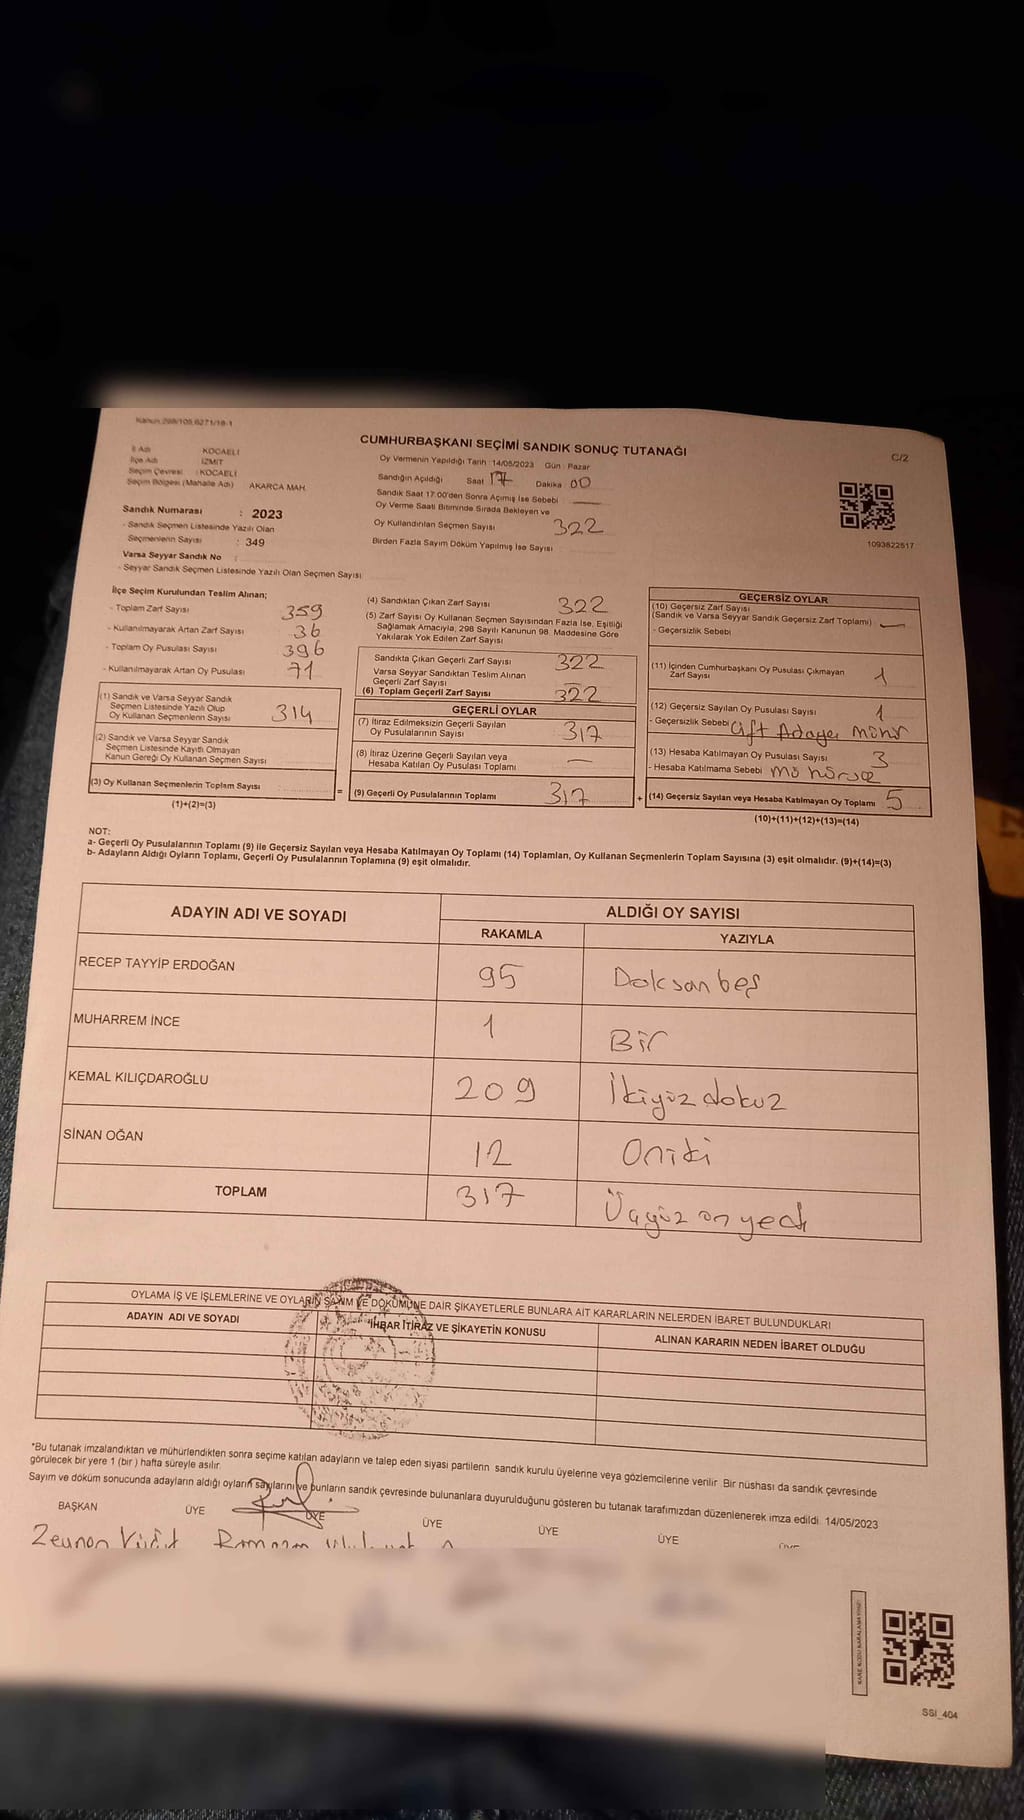 Kanun 298/105,6271/18-1
CUMHURBAŞKANI SEÇİMİ SANDIK SONUÇ TUTANAĞI
C/2
İl Adı KOCAELİ
İlçe Adı İZMİT
Seçim Çevresi : KOCAELİ
Seçim Bölgesi (Mahalle Adı) AKARCA MAH.
Sandık Numarası : 2023
- Sandık Seçmen Listesinde Yazılı Olan
Seçmenlerin Sayısı : 349
Varsa Seyyar Sandık No :
- Seyyar Sandık Seçmen Listesinde Yazılı Olan Seçmen Sayısı
Oy Vermenin Yapıldığı Tarih : 14/05/2023 Gün : Pazar
Sandığın Açıldığı Saat 17 Dakika 00
Sandık Saat 17:00'den Sonra Açılmış İse Sebebi —
Oy Verme Saati Bitiminde Sırada Bekleyen ve
Oy Kullandırılan Seçmen Sayısı 322
Birden Fazla Sayım Döküm Yapılmış İse Sayısı
1093822517
İlçe Seçim Kurulundan Teslim Alınan;
- Toplam Zarf Sayısı 359
- Kullanılmayarak Artan Zarf Sayısı 36
- Toplam Oy Pusulası Sayısı 396
- Kullanılmayarak Artan Oy Pusulası 71
(1) Sandık ve Varsa Seyyar Sandık
Seçmen Listesinde Yazılı Olup
Oy Kullanan Seçmenlerin Sayısı 314
(2) Sandık ve Varsa Seyyar Sandık
Seçmen Listesinde Kayıtlı Olmayan
Kanun Gereği Oy Kullanan Seçmen Sayısı
(3) Oy Kullanan Seçmenlerin Toplam Sayısı
(1)+(2)=(3)
=
(4) Sandıktan Çıkan Zarf Sayısı 322
(5) Zarf Sayısı Oy Kullanan Seçmen Sayısından Fazla İse, Eşitliği
Sağlamak Amacıyla, 298 Sayılı Kanunun 98. Maddesine Göre
Yakılarak Yok Edilen Zarf Sayısı —
Sandıkta Çıkan Geçerli Zarf Sayısı 322
Varsa Seyyar Sandıktan Teslim Alınan
Geçerli Zarf Sayısı —
(6) Toplam Geçerli Zarf Sayısı 322
GEÇERLİ OYLAR
(7) İtiraz Edilmeksizin Geçerli Sayılan
Oy Pusulalarının Sayısı 317
(8) İtiraz Üzerine Geçerli Sayılan veya
Hesaba Katılan Oy Pusulası Toplamı —
(9) Geçerli Oy Pusulalarının Toplamı 317
+
GEÇERSİZ OYLAR
(10) Geçersiz Zarf Sayısı
(Sandık ve Varsa Seyyar Sandık Geçersiz Zarf Toplamı) —
- Geçersizlik Sebebi
(11) İçinden Cumhurbaşkanı Oy Pusulası Çıkmayan
Zarf Sayısı 1
(12) Geçersiz Sayılan Oy Pusulası Sayısı 1
- Geçersizlik Sebebi Çift Adaya Mühür
(13) Hesaba Katılmayan Oy Pusulası Sayısı 3
- Hesaba Katılmama Sebebi
(14) Geçersiz Sayılan veya Hesaba Katılmayan Oy Toplamı 5
(10)+(11)+(12)+(13)=(14)
NOT:
a- Geçerli Oy Pusulalarının Toplamı (9) ile Geçersiz Sayılan veya Hesaba Katılmayan Oy Toplamı (14) Toplamları, Oy Kullanan Seçmenlerin Toplam Sayısına (3) eşit olmalıdır. (9)+(14)=(3)
b- Adayların Aldığı Oyların Toplamı, Geçerli Oy Pusulalarının Toplamına (9) eşit olmalıdır.
ADAYIN ADI VE SOYADI
ALDIĞI OY SAYISI
RAKAMLA YAZIYLA
RECEP TAYYİP ERDOĞAN 95 Doksan beş
MUHARREM İNCE 1 Bir
KEMAL KILIÇDAROĞLU 209 İkiyüz dokuz
SİNAN OĞAN 12 Oniki
TOPLAM 317 Üçyüz on yedi
OYLAMA İŞ VE İŞLEMLERİNE VE OYLARIN SAYIM VE DÖKÜMÜNE DAİR ŞİKAYETLERLE BUNLARA AİT KARARLARIN NELERDEN İBARET BULUNDUKLARI
ADAYIN ADI VE SOYADI
İHBAR İTİRAZ VE ŞİKAYETİN KONUSU
ALINAN KARARIN NEDEN İBARET OLDUĞU
*Bu tutanak imzalandıktan ve mühürlendikten sonra seçime katılan adayların ve talep eden siyasi partilerin sandık kurulu üyelerine veya gözlemcilerine verilir. Bir nüshası da sandık çevresinde
görülecek bir yere 1 (bir) hafta süreyle asılır.
Sayım ve döküm sonucunda adayların aldığı oyların sayılarını ve bunların sandık çevresinde bulunanlara duyurulduğunu gösteren bu tutanak tarafımızdan düzenlenerek imza edildi. 14/05/2023
BAŞKAN ÜYE ÜYE ÜYE ÜYE ÜYE
KARE KODU KARALAMAYINIZ!
SSİ_404